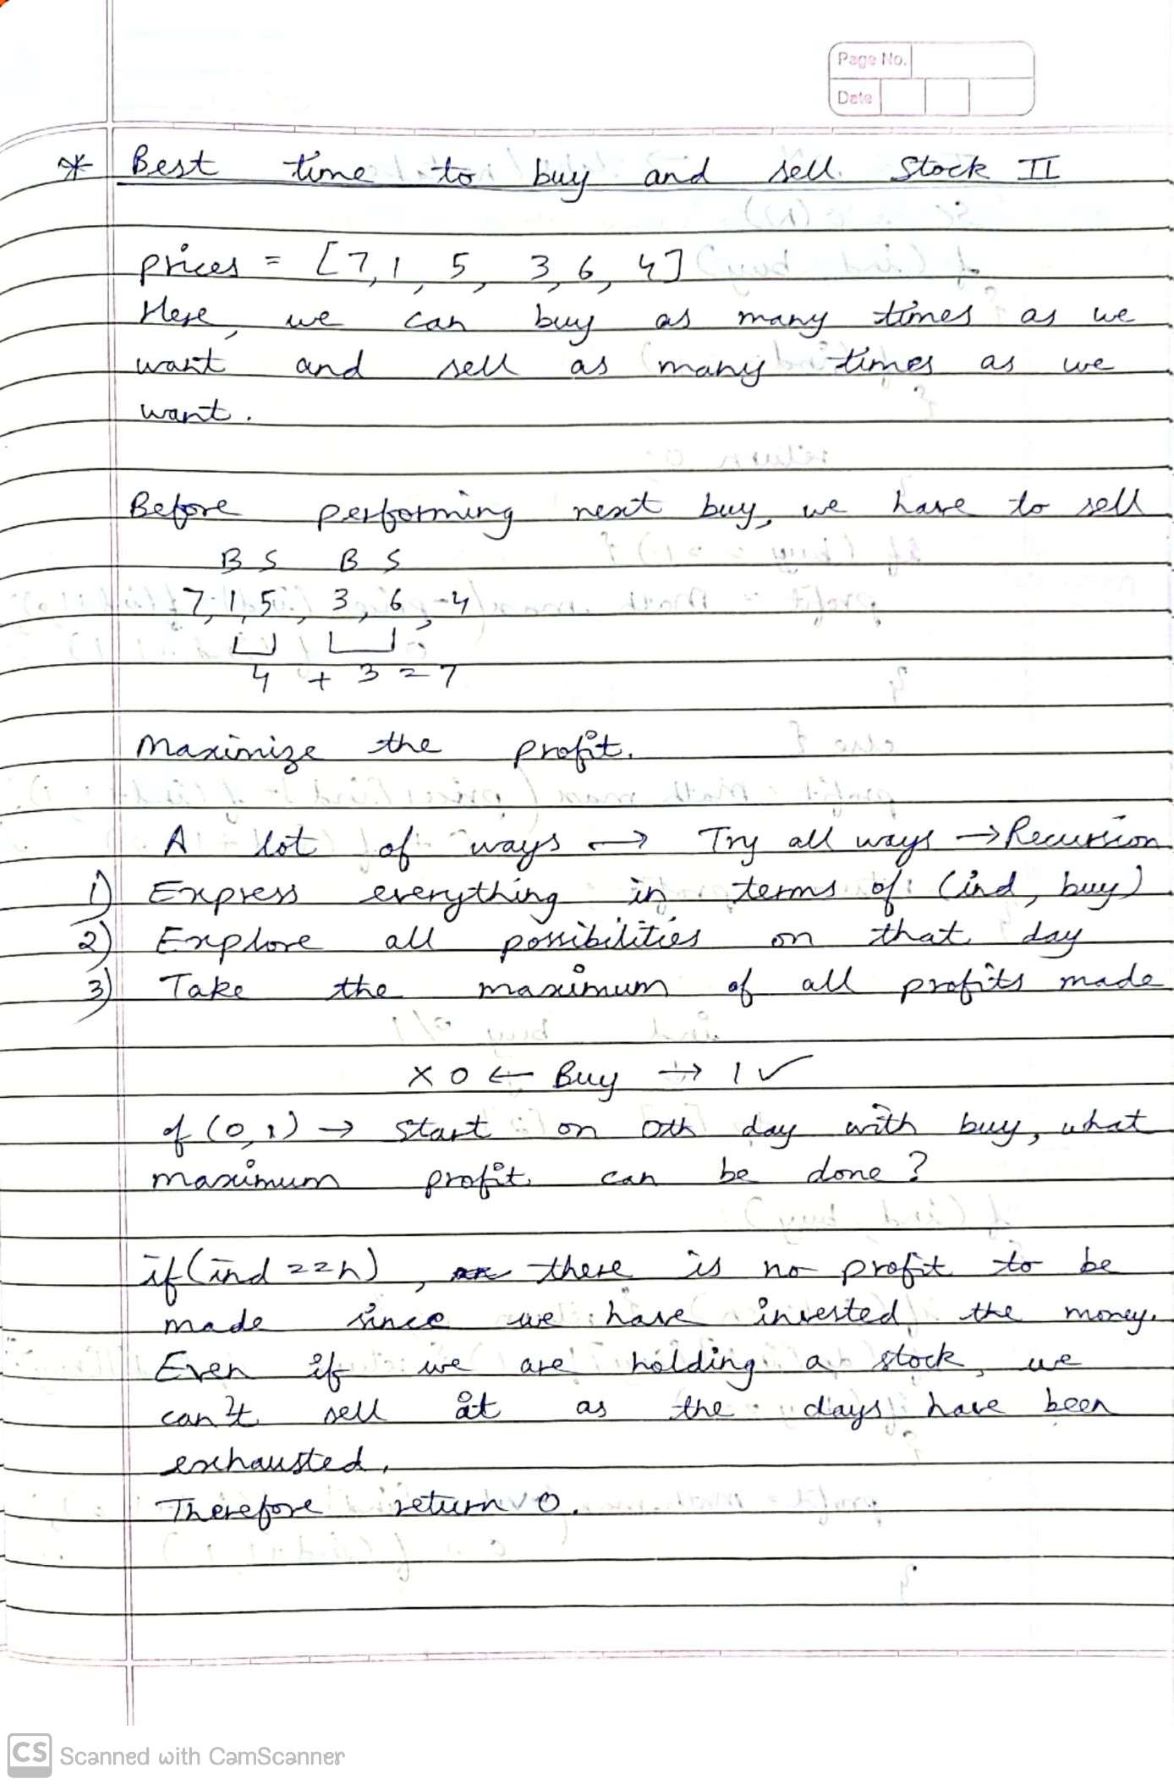 Page No.
Date
* Best time to buy and sell Stock II
prices = [7, 1, 5, 3, 6, 4]
Here, we can buy as many times as we
want and sell as many times as we
want.
Before performing next buy, we have to sell
B S B S
7, 1, 5, 3, 6, 4
4 + 3 = 7
Maximize the profit.
A lot of ways → Try all ways → Recursion
1) Express everything in terms of (ind, buy)
2) Explore all possibilities on that day
3) Take the maximum of all profits made
X 0 ← Buy → 1 ✓
f(0,1) → start on 0th day with buy, what
maximum profit can be done?
if(ind==n), there is no profit to be
made since we have invested the money.
Even if we are holding a stock, we
can't sell it as the days have been
exhausted.
Therefore return 0.
CS Scanned with CamScanner